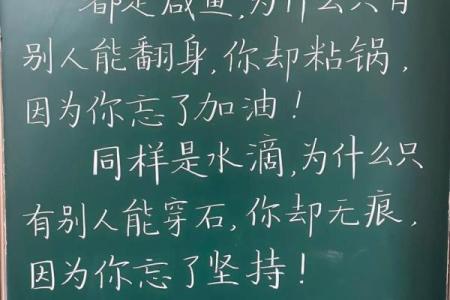 都是咸鱼,为什么只有
别人能翻身,你却粘锅,
因为你忘了加油!
同样是水滴,为什么只
有别人能穿石,你却无痕,
因为你忘了坚持!